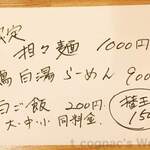 限定
担々麺 1000円
鶏白湯らーめん 900
白ご飯 200円
大・中・小 同料金
替玉
150
cognac's W